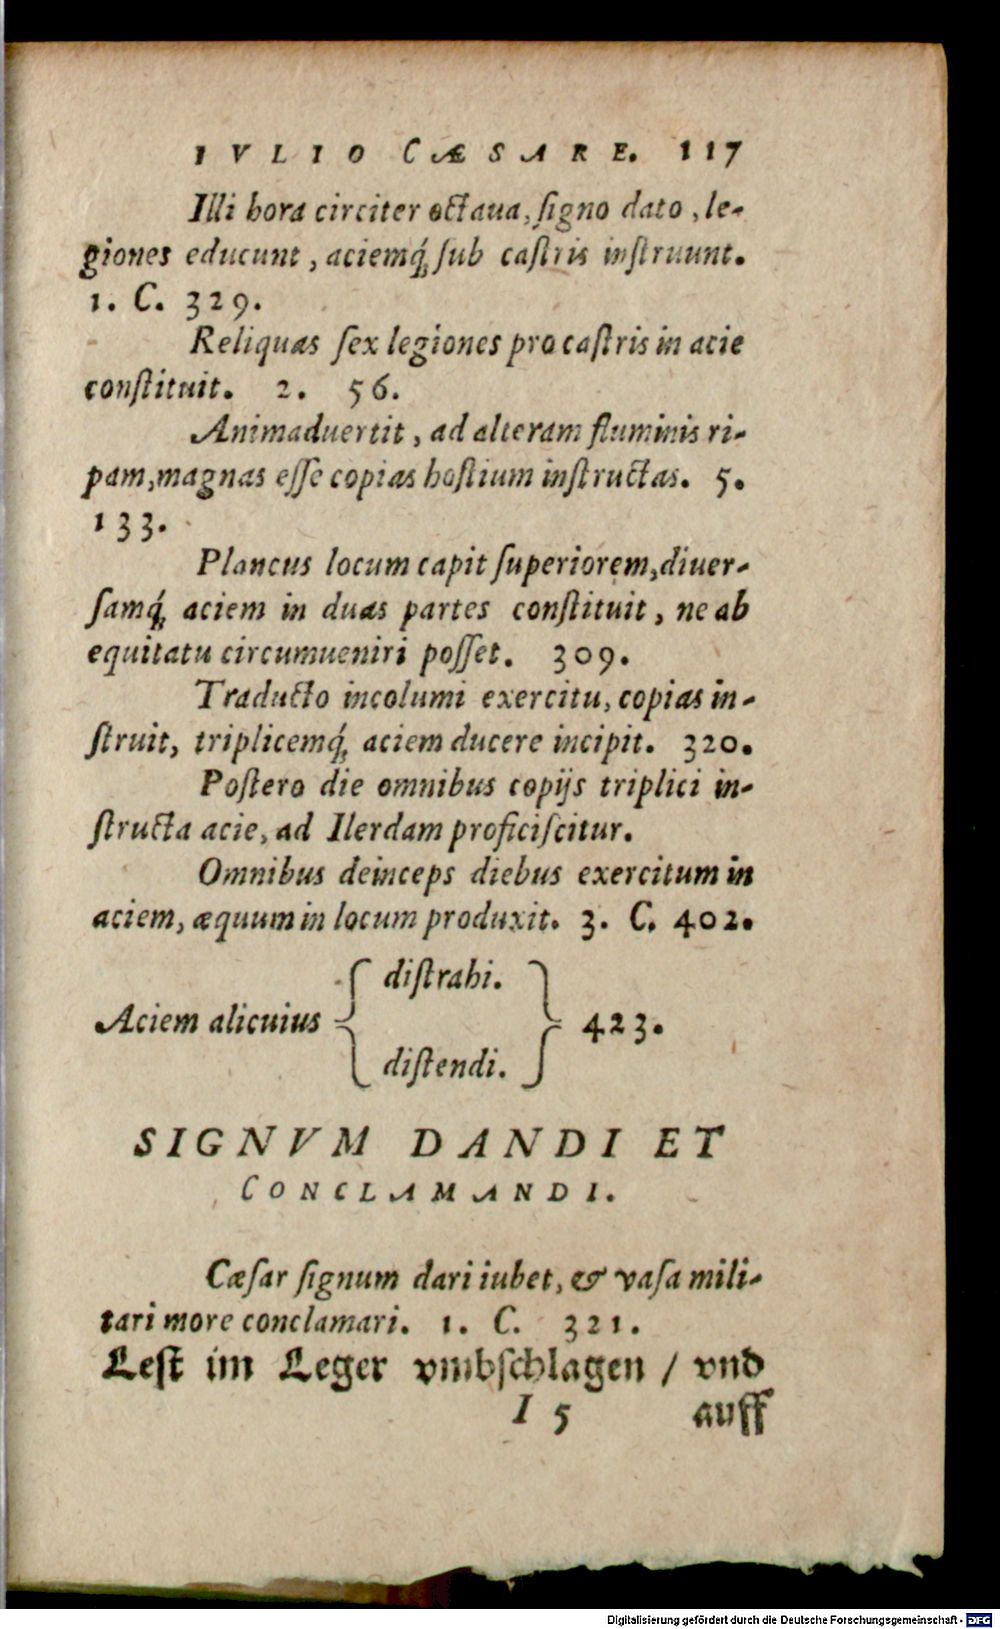 IVLIO CÆSARE. 117
Illi hora circiter octaua, ſigno dato, le-
giones educunt, aciemq́; ſub caſtris inſtruunt.
1. C. 329.
Reliquas ſex legiones pro caſtris in acie
conſtituit. 2. 56.
Animaduertit, ad alteram fluminis ri-
pam, magnas eſſe copias hoſtium inſtructas. 5.
133.
Plancus locum capit ſuperiorem, diuer-
ſamq́; aciem in duas partes conſtituit, ne ab
equitatu circumueniri poſſet. 309.
Traducto incolumi exercitu, copias in-
ſtruit, triplicemq́; aciem ducere incipit. 320.
Poſtero die omnibus copijs triplici in-
ſtructa acie, ad Ilerdam proficiſcitur.
Omnibus deinceps diebus exercitum in
aciem, æquum in locum produxit. 3. C. 402.
diſtrahi.
Aciem alicuius { } 423.
diſtendi.
SIGNVM DANDI ET
CONCLAMANDI.
Cæſar ſignum dari iubet, & vaſa mili-
tari more conclamari. 1. C. 321.
Leſt im Leger vmbſchlagen / vnd
I 5 auff
Digitalisierung gefördert durch die Deutsche Forschungsgemeinschaft - DFG